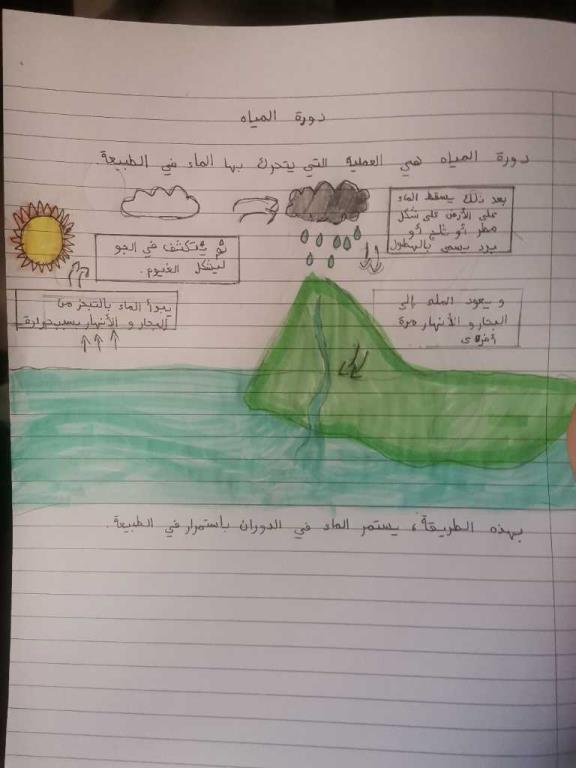 دورة المياه
دورة المياه هي العملية التي يتحرك بها الماء في الطبيعة.
يبدأ الماء بالتبخر من
البحار و الأنهار بسبب حرارة
ثم يتكثف في الجو
ليشكل الغيوم.
بعد ذلك يسقط الماء
على الأرض على شكل
مطر أو ثلج أو
برد يسمى بالهطول
و يعود الماء إلى
البحار و الأنهار مرة
أخرى
بهذه الطريقة، يستمر الماء في الدوران بأستمرار في الطبيعة.